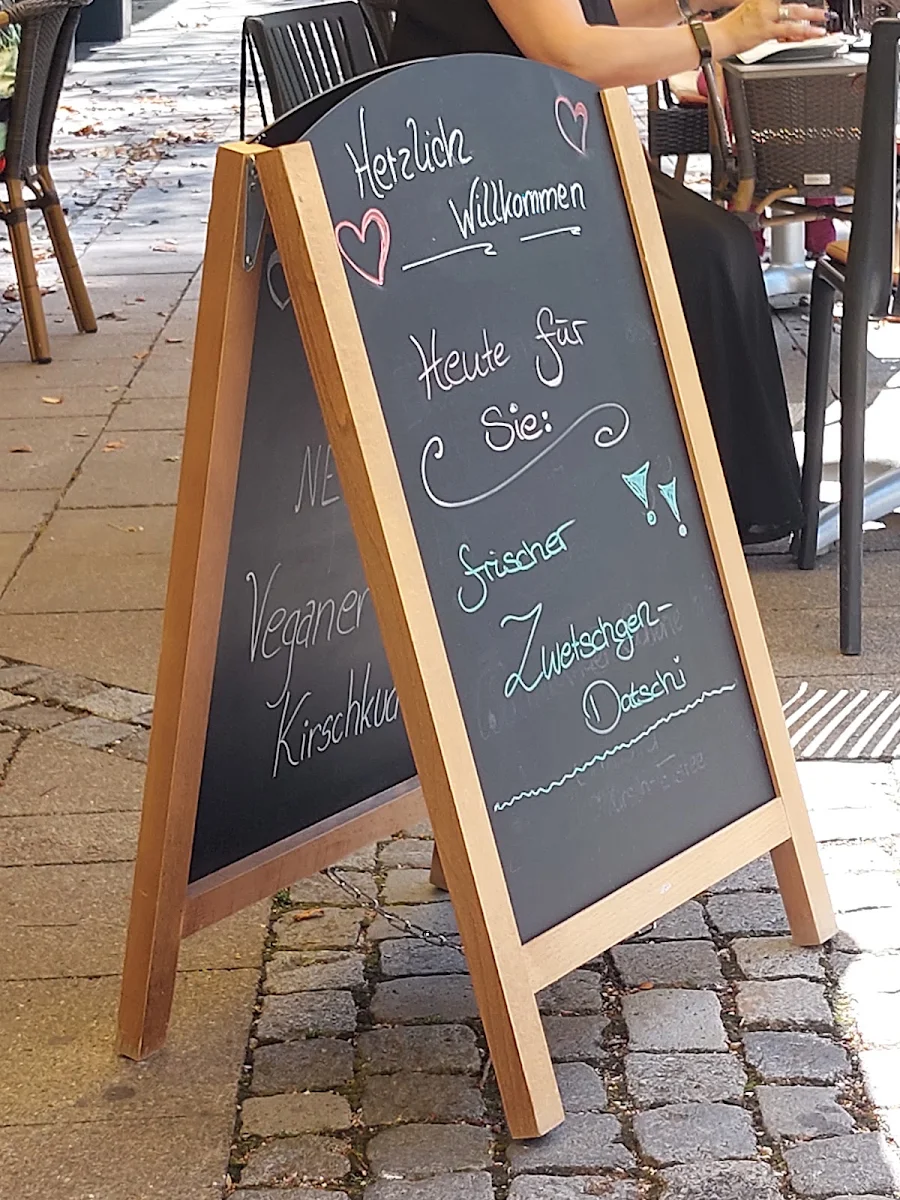 Herzlich
Willkommen
Heute für
Sie:
frischer
Zwetschgen-
Datschi
NE
Veganer
Kirschkuc